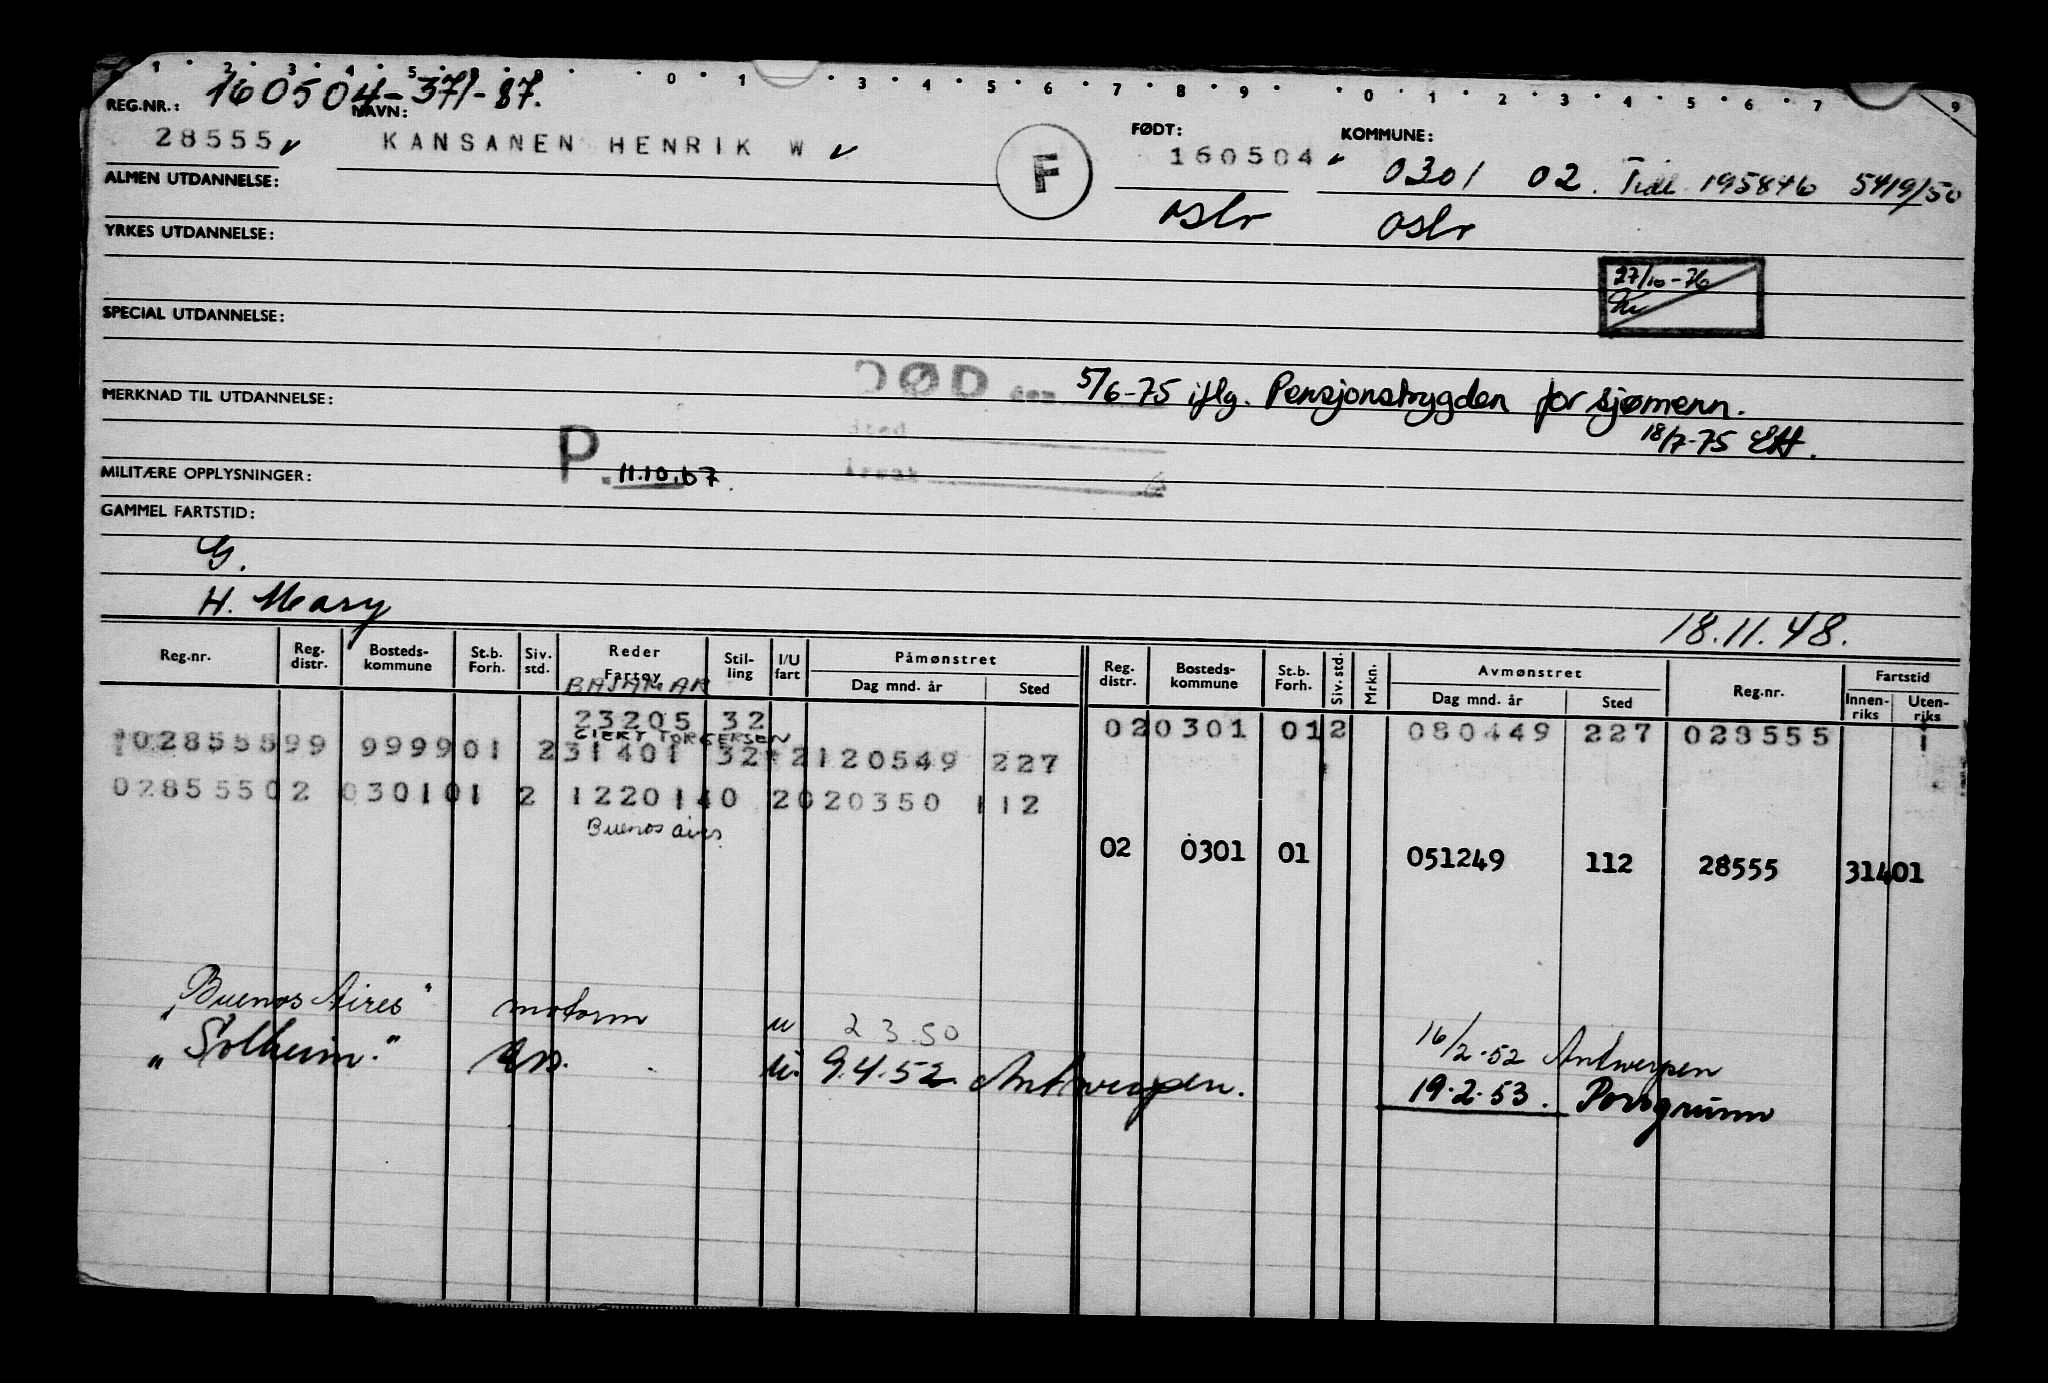 1 2 3 4 5 0 1 3 4 5 6 7 8 9 0 1 2 3 4 5 6 7 9
REG.NR.: 160504-371-87. NAVN: FØDT: KOMMUNE:
28555 KANSANEN HENRIK W F 160504 0301 02. Tidl. 195846 5419/50
ALMEN UTDANNELSE: Oslo Oslo
YRKES UTDANNELSE:
27/10-76
SPECIAL UTDANNELSE:
DØD den 5/6-75 iflg. Pensjonstrygden for sjømenn.
MERKNAD TIL UTDANNELSE: Sted 18/7-75 EH.
P. 11.10.67 Årsak
MILITÆRE OPPLYSNINGER:
GAMMEL FARTSTID:
G.
H. Mary 18.11.48.
Reg.nr. Reg. distr. Bosteds-kommune St.b. Forh. Siv. std. Reder Fartøy Stil-ling I/U fart Påmønstret Dag mnd. år Sted Reg. distr. Bosteds-kommune St.b. Forh. Siv. std. Mrkn. Avmønstret Dag mnd. år Sted Reg.nr. Fartstid Innen-riks Uten-riks
BAJAMAR
23205 32 020301 012 080449 227 028555 1
GIERT TORGERSEN
02855599 999901 231401 32 2120549 227
02855502 030101 2 1220140 2020350 112
Buenos aires
02 0301 01 051249 112 28555 31401
"Buenos Aires" motorm u 2 3.50 16/2-52 Antwerpen
"Solheim." u. 9.4.52. Antwerpen. 19.2.53. Porsgrunn